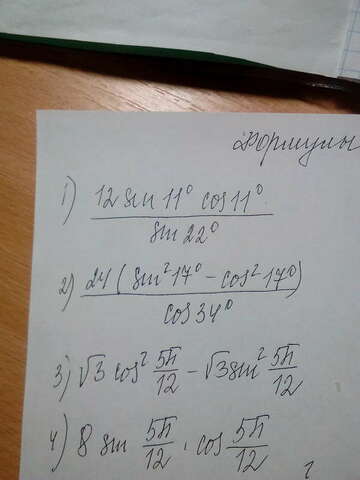 Формулы
1) 12 sin 11° cos 11° / sin 22°
2) 24 ( sin² 17° - cos² 17° ) / cos 34°
3) √3 cos² 5π/12 - √3 sin² 5π/12
4) 8 sin 5π/12 · cos 5π/12